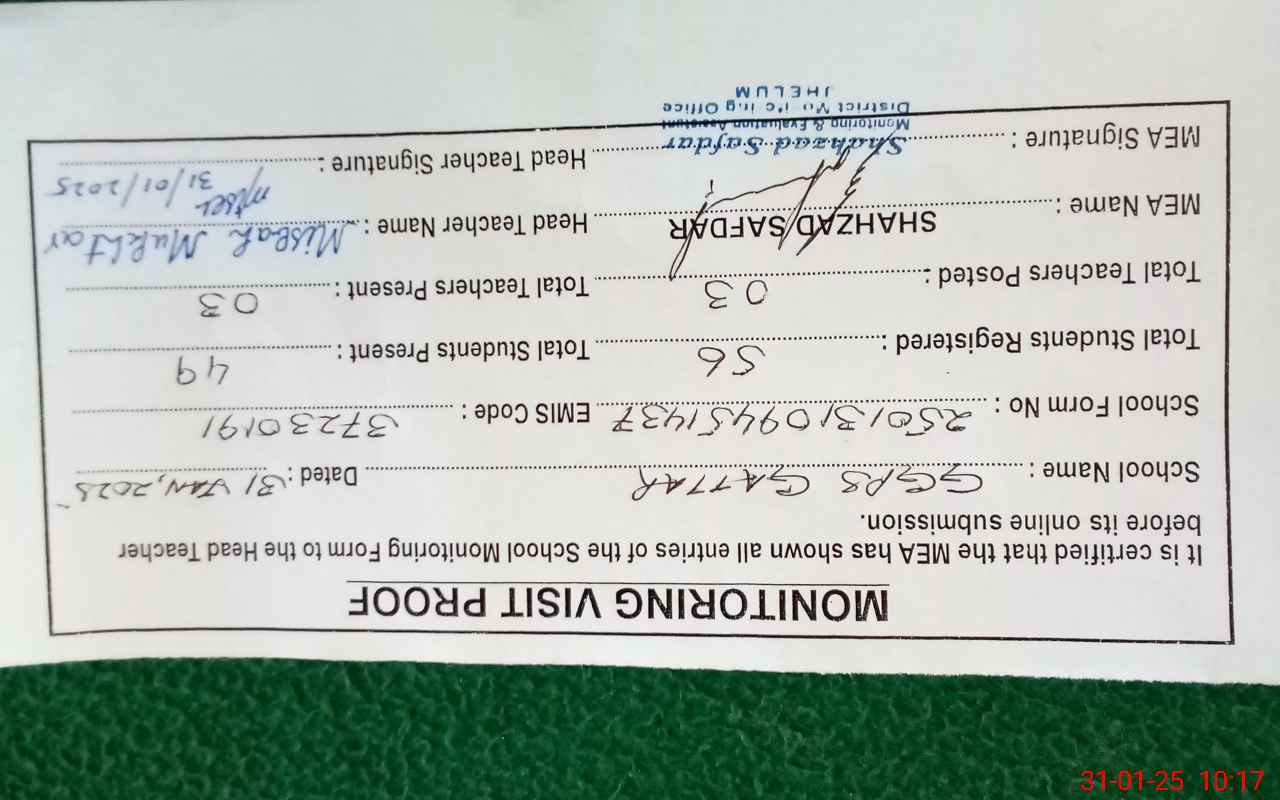 MONITORING VISIT PROOF
It is certified that the MEA has shown all entries of the School Monitoring Form to the Head Teacher
before its online submission.
School Name : GGPS GATTAR Dated : 31 JAN, 2025
School Form No : 25013109451437 EMIS Code : 37230191
Total Students Registered : 56 Total Students Present : 49
Total Teachers Posted : 03 Total Teachers Present : 03
MEA Name : SHAHZAD SAFDAR Head Teacher Name : Misbah Mukhtar
MEA Signature : Head Teacher Signature : 31/01/2025
Shahzad Safdar
Monitoring & Evaluation Assistant
District Monitoring Office
JHELUM
31-01-25 10:17